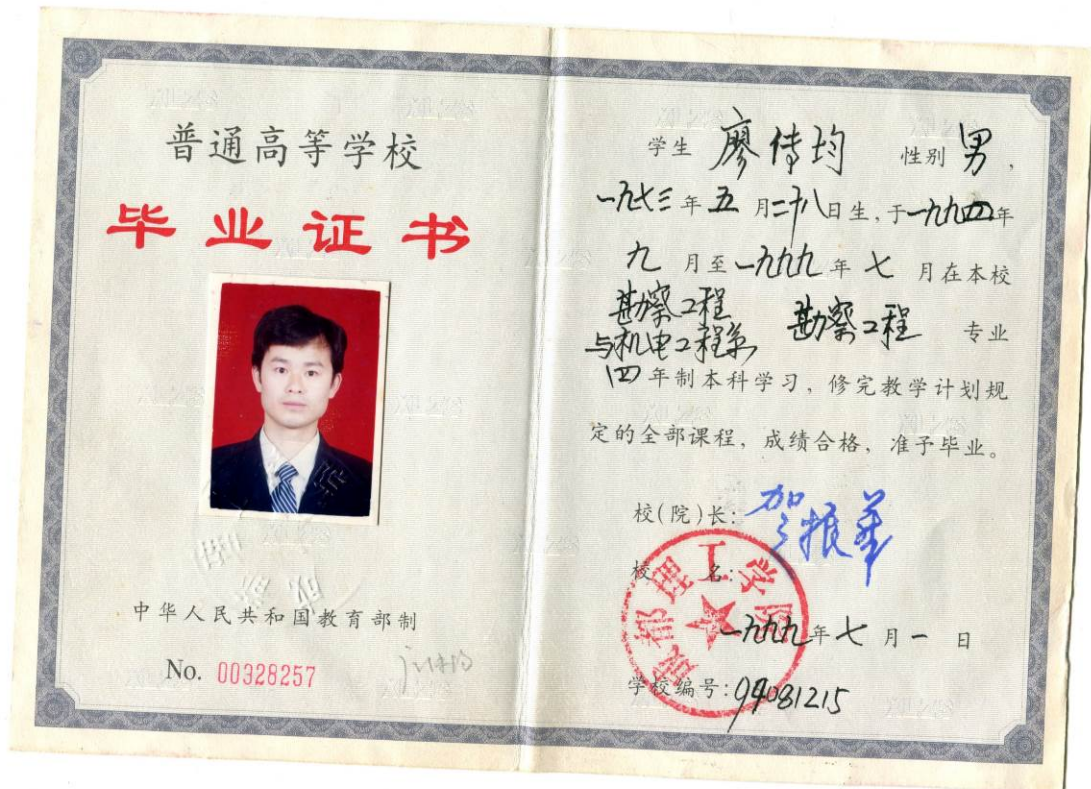 普通高等学校
毕业证书
中华人民共和国教育部制
No. 00328257
学生 廖传均 性别 男，
一九七三年五月二十八日生，于一九九四年
九月至一九九九年七月在本校
勘察工程与机电工程系 勘察工程 专业
四年制本科学习，修完教学计划规
定的全部课程，成绩合格，准予毕业。
校(院)长：贺振华
校名：
成都理工学院
一九九九年七月一日
学校编号：94081215